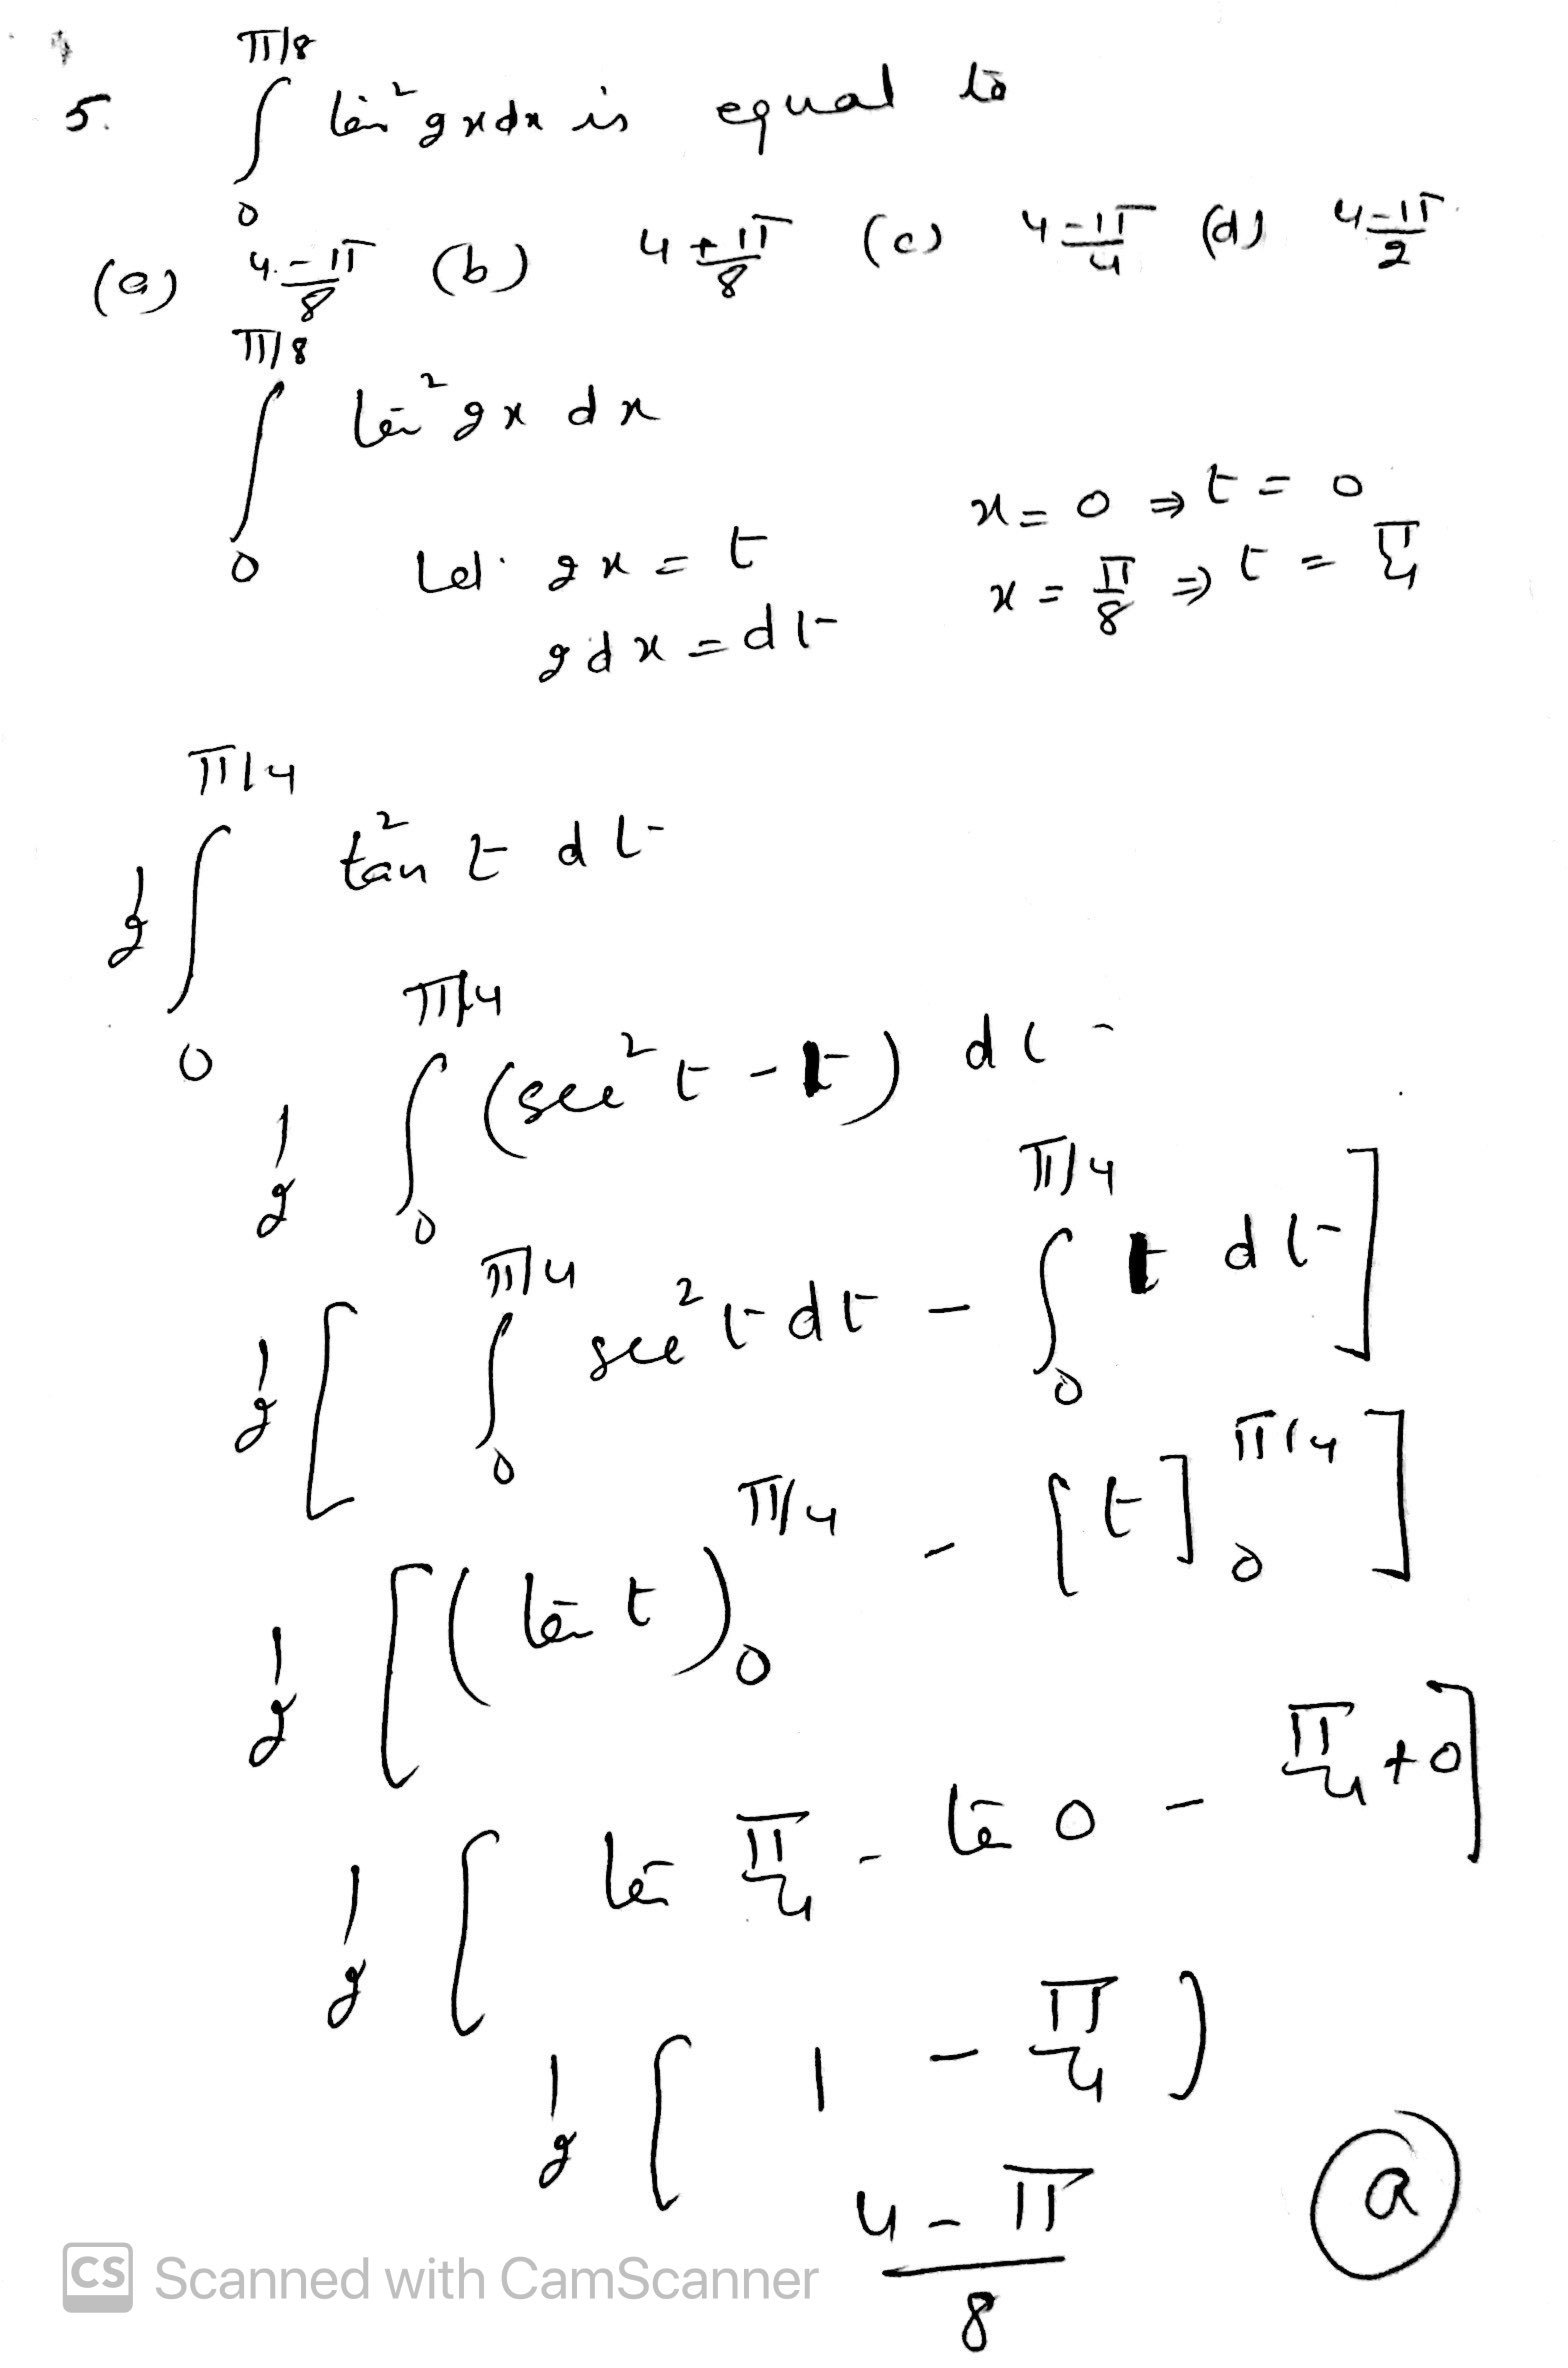 5. ∫₀^{π/8} tan² 2x dx is equal to
(a) (4-π)/8 (b) (4+π)/8 (c) (4-π)/4 (d) (4-π)/2
∫₀^{π/8} tan² 2x dx
Let 2x = t x = 0 ⇒ t = 0
2dx = dt x = π/8 ⇒ t = π/4
1/2 ∫₀^{π/4} tan² t dt
1/2 ∫₀^{π/4} (sec² t - 1) dt
1/2 [ ∫₀^{π/4} sec² t dt - ∫₀^{π/4} 1 dt ]
1/2 [ (tan t)₀^{π/4} - [t]₀^{π/4} ]
1/2 [ tan π/4 - tan 0 - π/4 + 0 ]
1/2 [ 1 - π/4 )
(4 - π)/8 (a)
CS Scanned with CamScanner